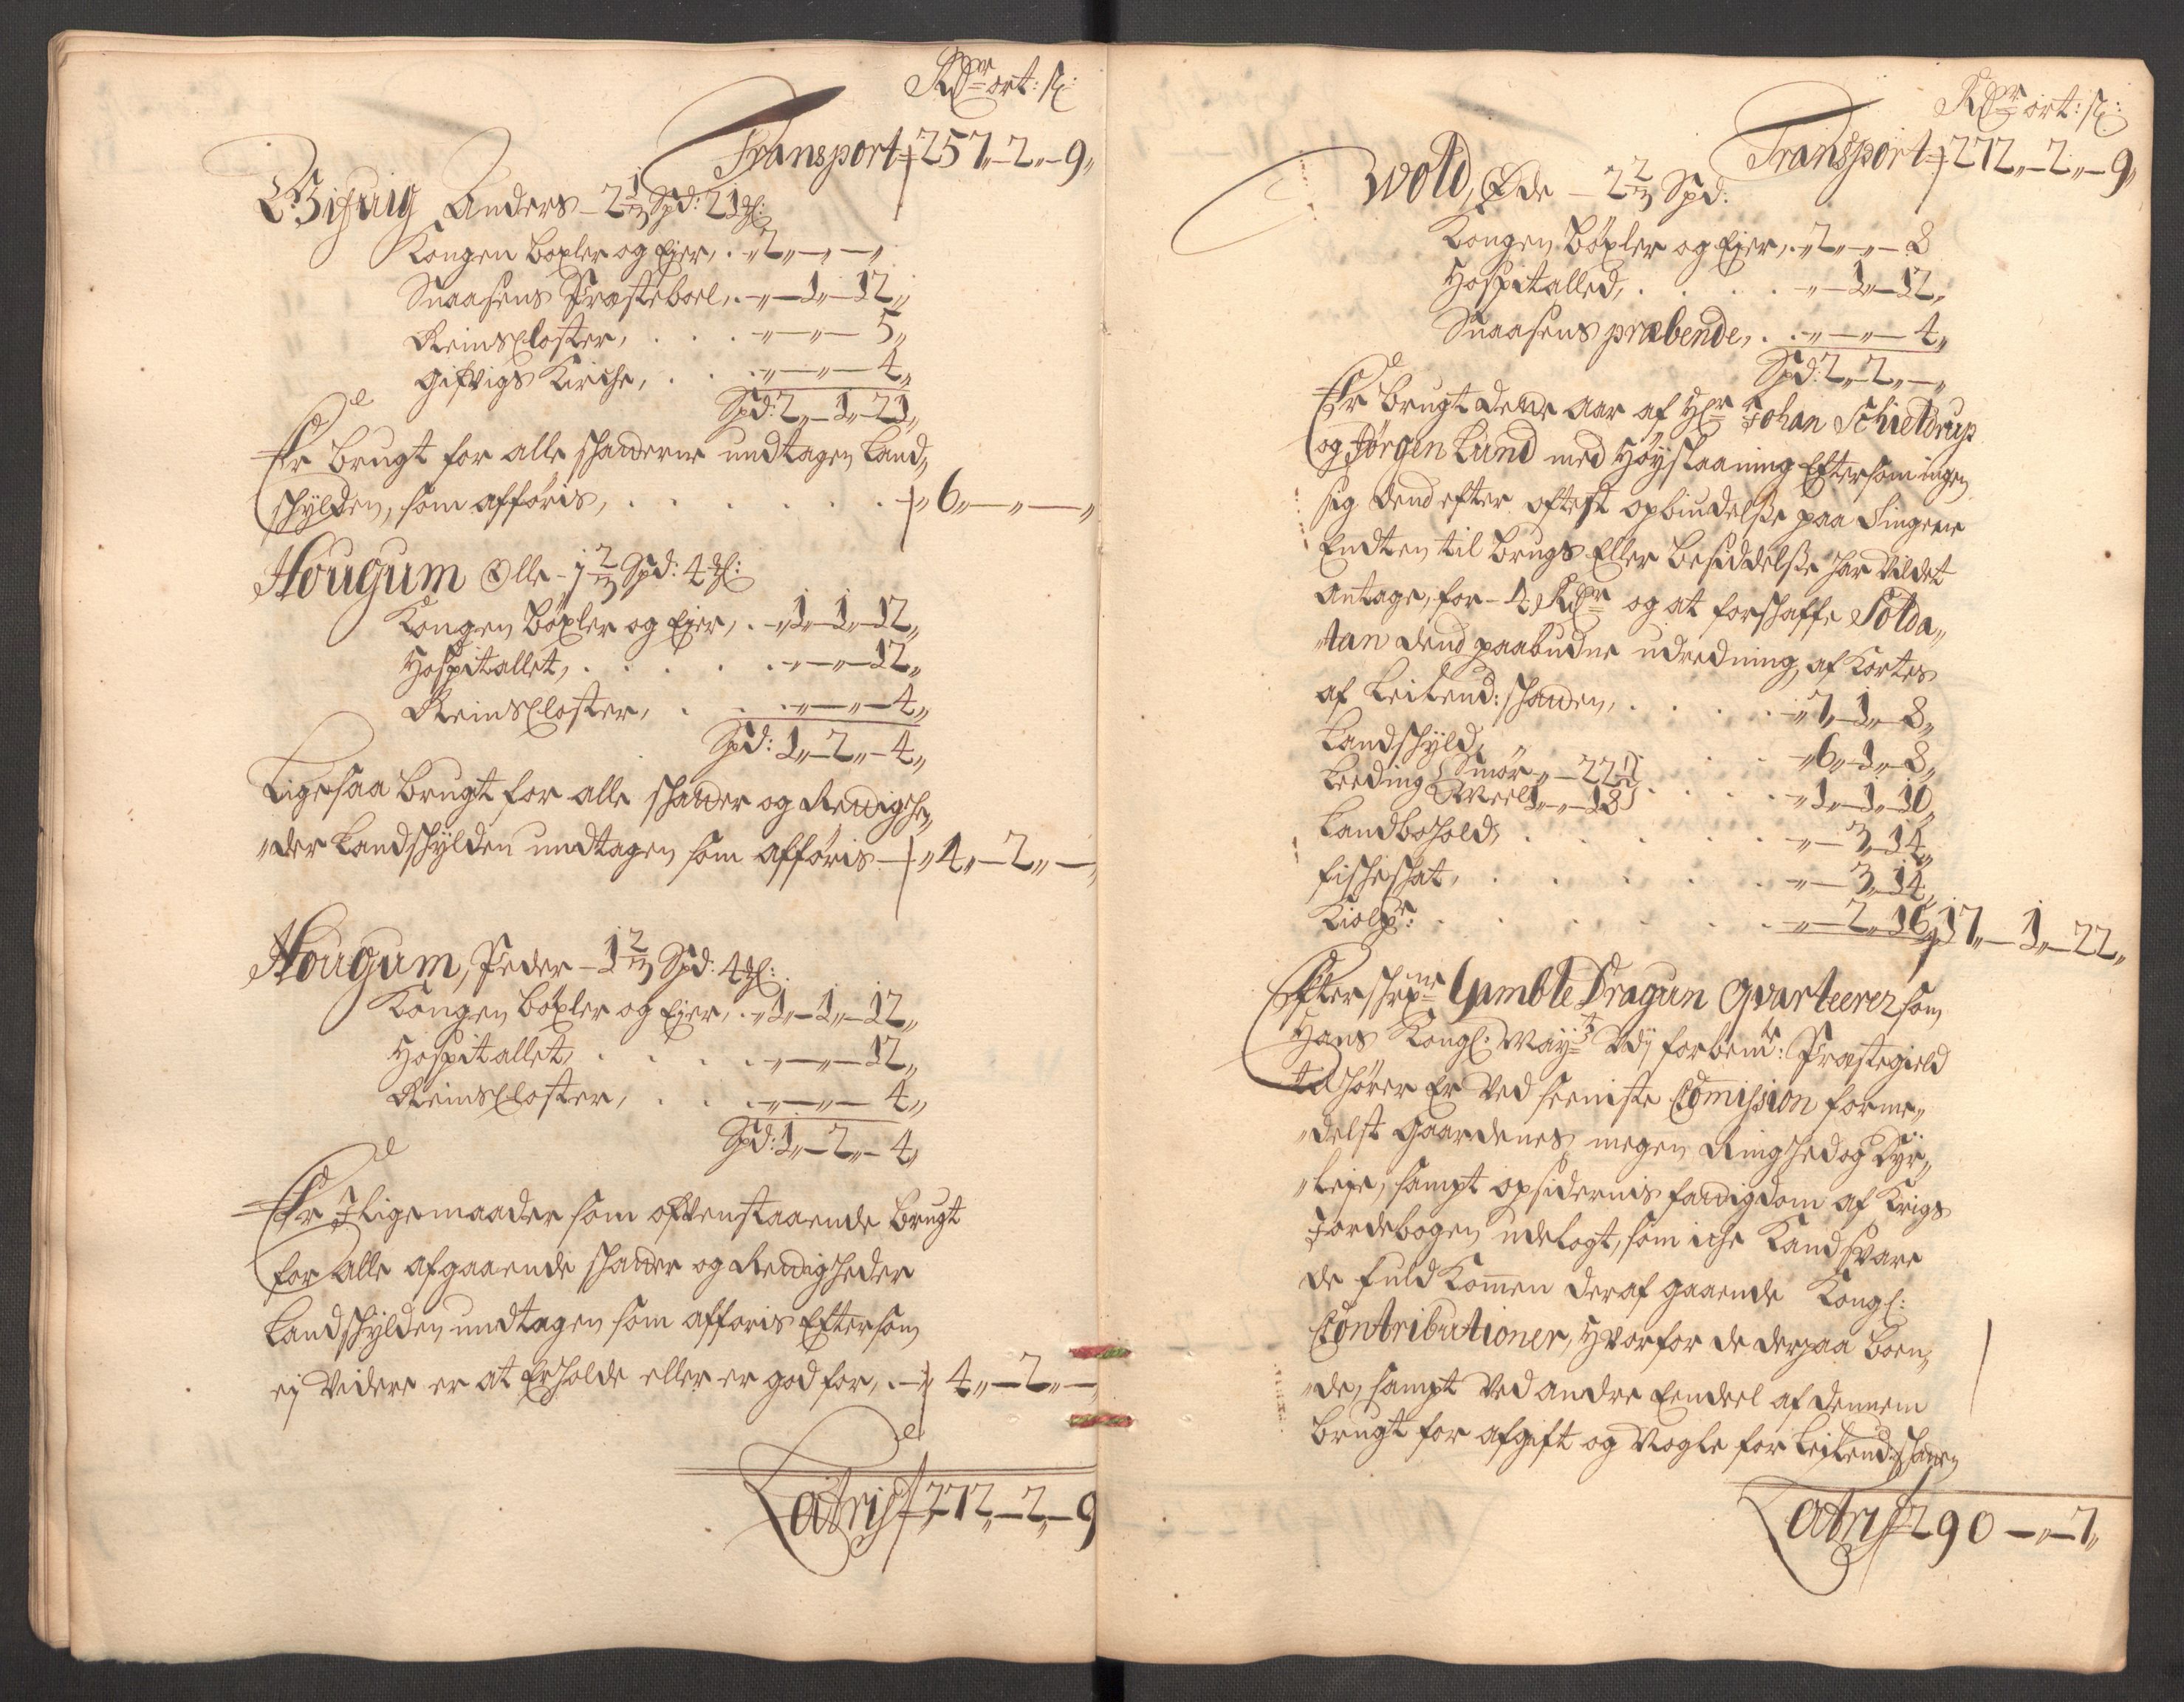 Rdr ort: s:
Transport 257„-2„-9„
Gifuig Anders - 2 1/3 Spd: 21
Kongen boxler og Ejer, . „2„-„-„
Snaasens Præsteboel, . „-1„-12„
Reinscloster, . . . „-„-5„
Gifvigs Kirche, . . „-„-4„
Spd: 2„-1„-21„
Er brugt for alle schatterne undtagen Land„
schylden, som afføris, . . . . . . „6„-„-„
Hougum Olle - 1 2/3 Spd: 4
Kongen bøxler og Ejer, . „1„-1„-12„
Hospitallet, . . . . . „-„-12„
Reinscloster, . . . „-„-4„
Spd: 1„-2„-4„
Ligesaa brugt for alle schatter og Rettighe„
„der Landschylden undtagen som afføris „4„-2„-
Hougum, Peder - 1 2/3 Spd: 4
Kongen bøxler og Ejer, . „1„-1„-12„
Hospitallet, . . . . „-„-12„
Reinscloster, . . . „-„-4„
Spd: 1„-2„-4„
Er J ligemaader som offvenstaaende brugt
for alle afgaaende schatter og Rettigheder
Landschylden undtagen som afføris Eftersom
ej Videre er at Erholde eller er god for, . 4„-2„-
Latris 272„-2„-9
Rdr ort: s:
Transport 272„-2„-9„
Wold, Øde - 2 2/3 Spd:
Kongen bøxler og Ejer, . „2„-„-8
Hospitalled, . . . . „-1„-12„
Snaasens præbende, . . „-„-4„
Spd: 2„-2„-„
Er brugt dette aar af Hr Johan Schieldrup
og Jørgen Lund med Høyslaaning Eftersom ingen
sig dend efter oftest opbiudelsse paa Tingene
Endten til brugs Eller besiddelsse har vildet
antage, for - 4 Rdr og at forschaffe Solda„
„ten dend paabudne udredning, af Kortes
af Leilend: schatten, . . . . „7„-1„-8„
Landschyld, „ . . . „6„-1„-8„
Leeding Smør „-22 1/2
Meel 1„-18 . . . . „1„-1„-10„
Landbohold, . . . . . . „-3„-14„
fischeschat, . . . . . . „-3„-14„
Kiolpr: . . . . . . . „-2„-16„ 17„-1„-22„
Efterschrefne Gamble Dragun Qvarteerer som
Hans Kongl: Mayts Udj forbemte: Præstegield
tilhører Er ved seeniste Comission forme„
„delst Gaardenes megen Ringhed og Dyr„
„leje, sampt opsidernis fattigdom af Krigs
Jordebogen udelagt, som iche Kand svare
de fuldkommen deraf gaaende Kongl:
Contributioner, Hvorfor de derpaa boen„
„de, sampt ved andre Eendeel af dennem
brugt for afgift og Nogle for Leilend: schatten
Latris 290-„-7„